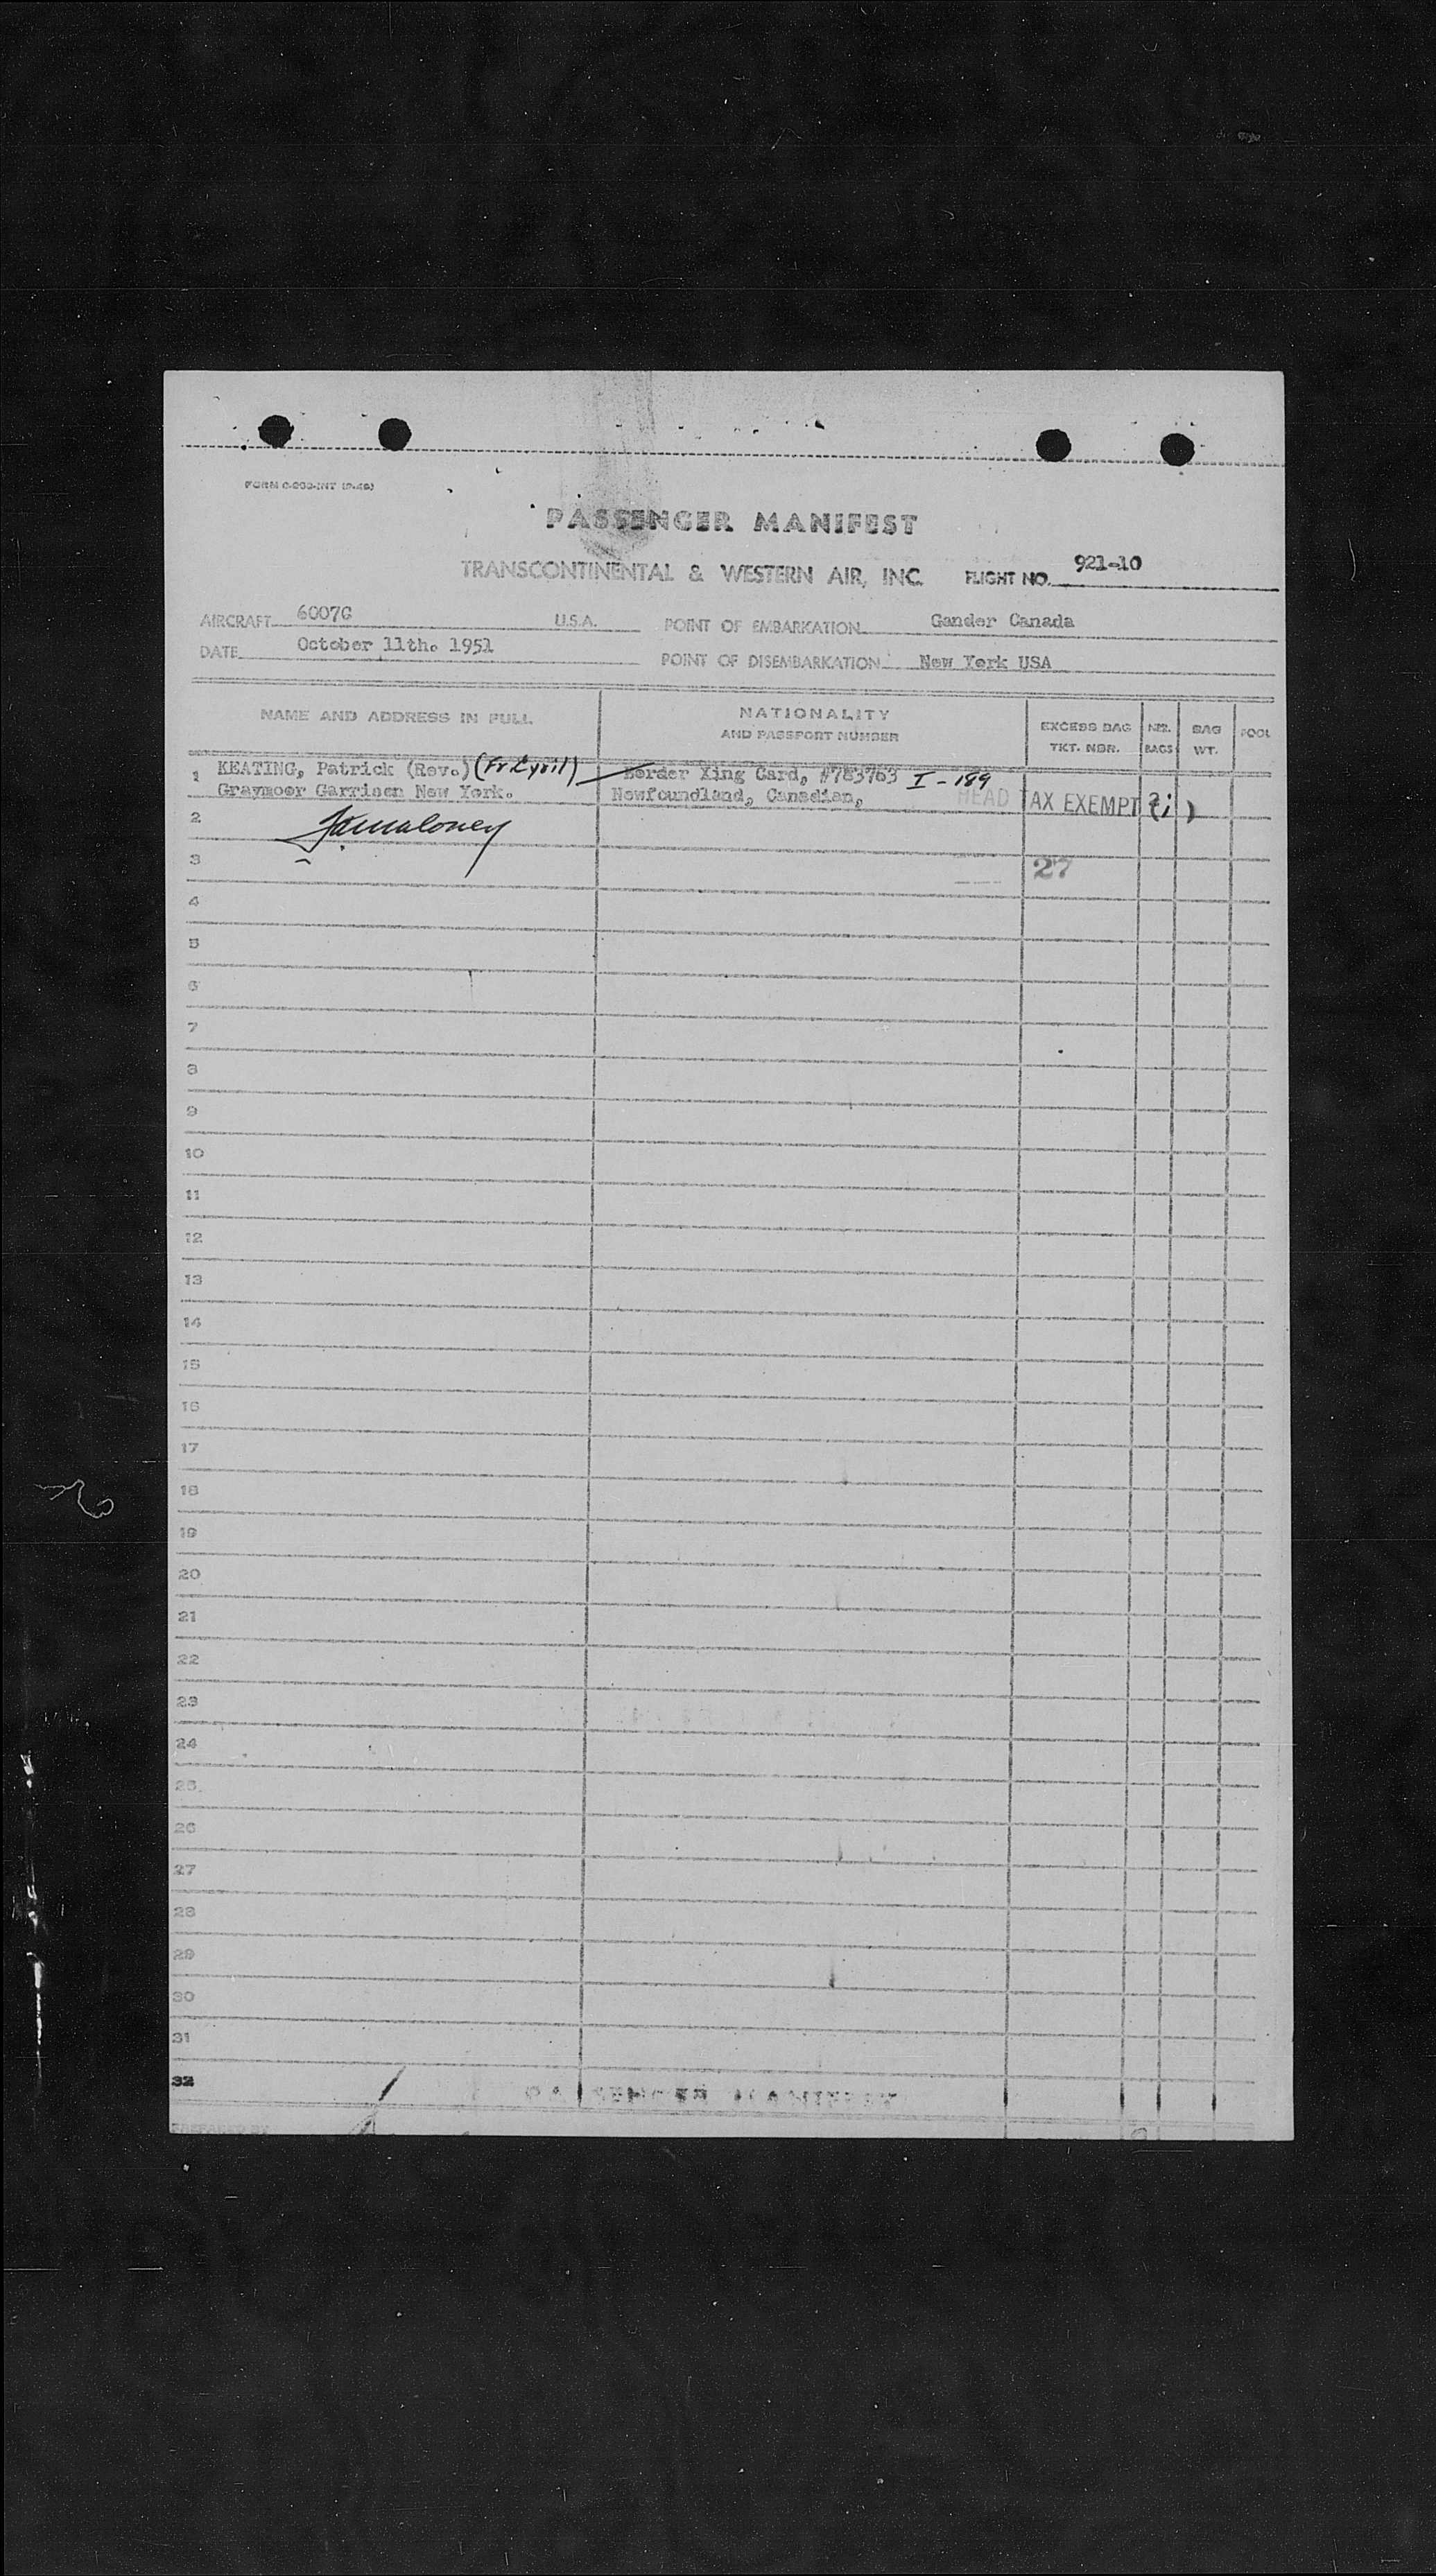 PASSENGER MANIFEST
TRANSCONTINENTAL & WESTERN AIR, INC. FLIGHT NO. 921-10
AIRCRAFT 6007C U.S.A. POINT OF EMBARKATION Gander Canada
DATE October 11th. 1951 POINT OF DISEMBARKATION New York USA
NAME AND ADDRESS IN FULL NATIONALITY AND PASSPORT NUMBER EXCESS BAG TKT. NBR. NBR. BAGS BAG WT. POOL
1 KEATING, Patrick (Rev.) (Fr Cyril) Border Xing Card, #783763 I-189
Graymoor Garrison New York. Newfoundland, Canadian, HEAD TAX EXEMPT
2
3 27
4
5
6
7
8
9
10
11
12
13
14
15
16
17
18
19
20
21
22
23
24
25
26
27
28
29
30
31
32
PREPARED BY